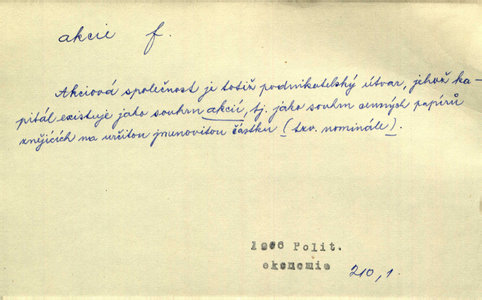 akcie f.
Akciová společnost je totiž podnikatelský útvar, jehož ka-
pitál existuje jako souhrn akcií, tj. jako souhrn cenných papírů
znějících na určitou jmenovitou částku (tzv. nominále).
Polit.
ekonomie 210,1.